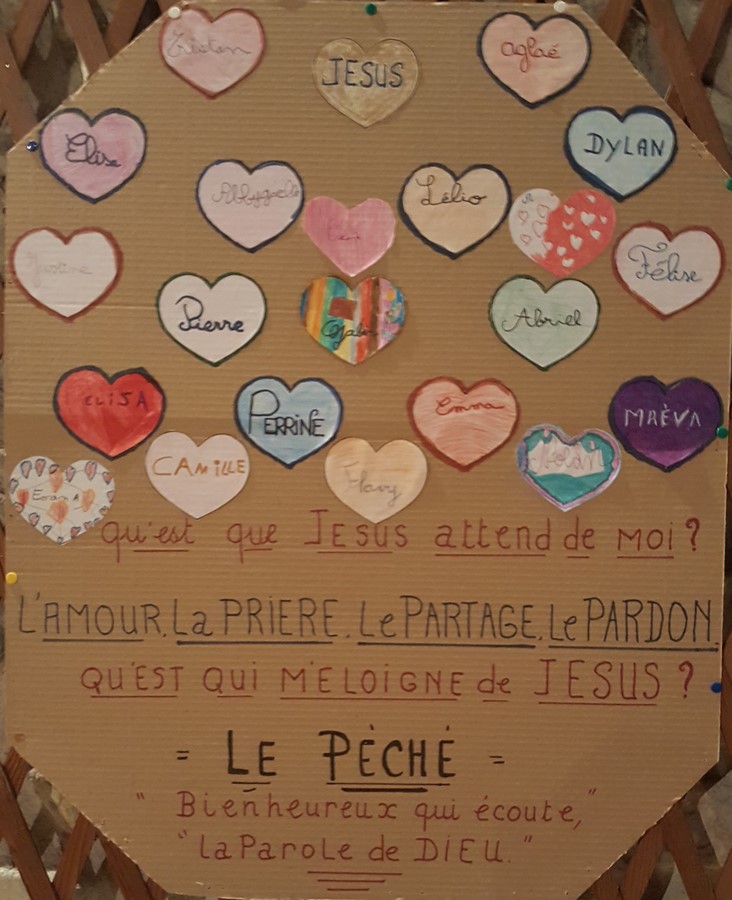 Tristan
JESUS
Aglaé
Elise
DYLAN
Abbygaelle
Lélio
Justine
Félise
Pierre
Gabin
Abriel
ELISA
PERRINE
Emma
MAËVA
CAMILLE
Flavy
Eman A
qu'est que JESUS attend de MOI ?
L'AMOUR. La PRIERE. Le PARTAGE. Le PARDON.
QU'EST QUI M'ELOIGNE de JESUS ?
= LE PÈCHÉ =
" Bienheureux qui écoute,"
"la Parole de DIEU."